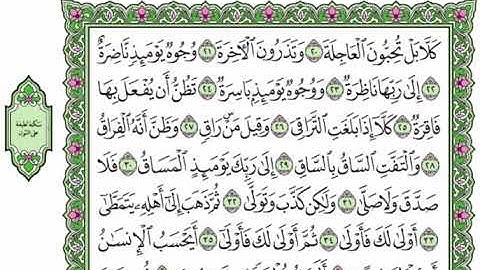 كَلَّا بَلْ تُحِبُّونَ ٱلْعَاجِلَةَ ٢٠ وَتَذَرُونَ ٱلْأَخِرَةَ ٢١ وُجُوهٌ يَوْمَئِذٍ نَّاضِرَةٌ
٢٢ إِلَىٰ رَبِّهَا نَاظِرَةٌ ٢٣ وَوُجُوهٌ يَوْمَئِذٍۭ بَاسِرَةٌ ٢٤ تَظُنُّ أَن يُفْعَلَ بِهَا
فَاقِرَةٌ ٢٥ كَلَّآ إِذَا بَلَغَتِ ٱلتَّرَاقِىَ ٢٦ وَقِيلَ مَنْ رَاقٍ ٢٧ وَظَنَّ أَنَّهُ ٱلْفِرَاقُ
٢٨ وَٱلْتَفَّتِ ٱلسَّاقُ بِٱلسَّاقِ ٢٩ إِلَىٰ رَبِّكَ يَوْمَئِذٍ ٱلْمَسَاقُ ٣٠ فَلَا
صَدَّقَ وَلَا صَلَّىٰ ٣١ وَلَٰكِن كَذَّبَ وَتَوَلَّىٰ ٣٢ ثُمَّ ذَهَبَ إِلَىٰٓ أَهْلِهِۦ يَتَمَطَّىٰٓ
٣٣ أَوْلَىٰ لَكَ فَأَوْلَىٰ ٣٤ ثُمَّ أَوْلَىٰ لَكَ فَأَوْلَىٰٓ ٣٥ أَيَحْسَبُ ٱلْإِنسَٰنُ